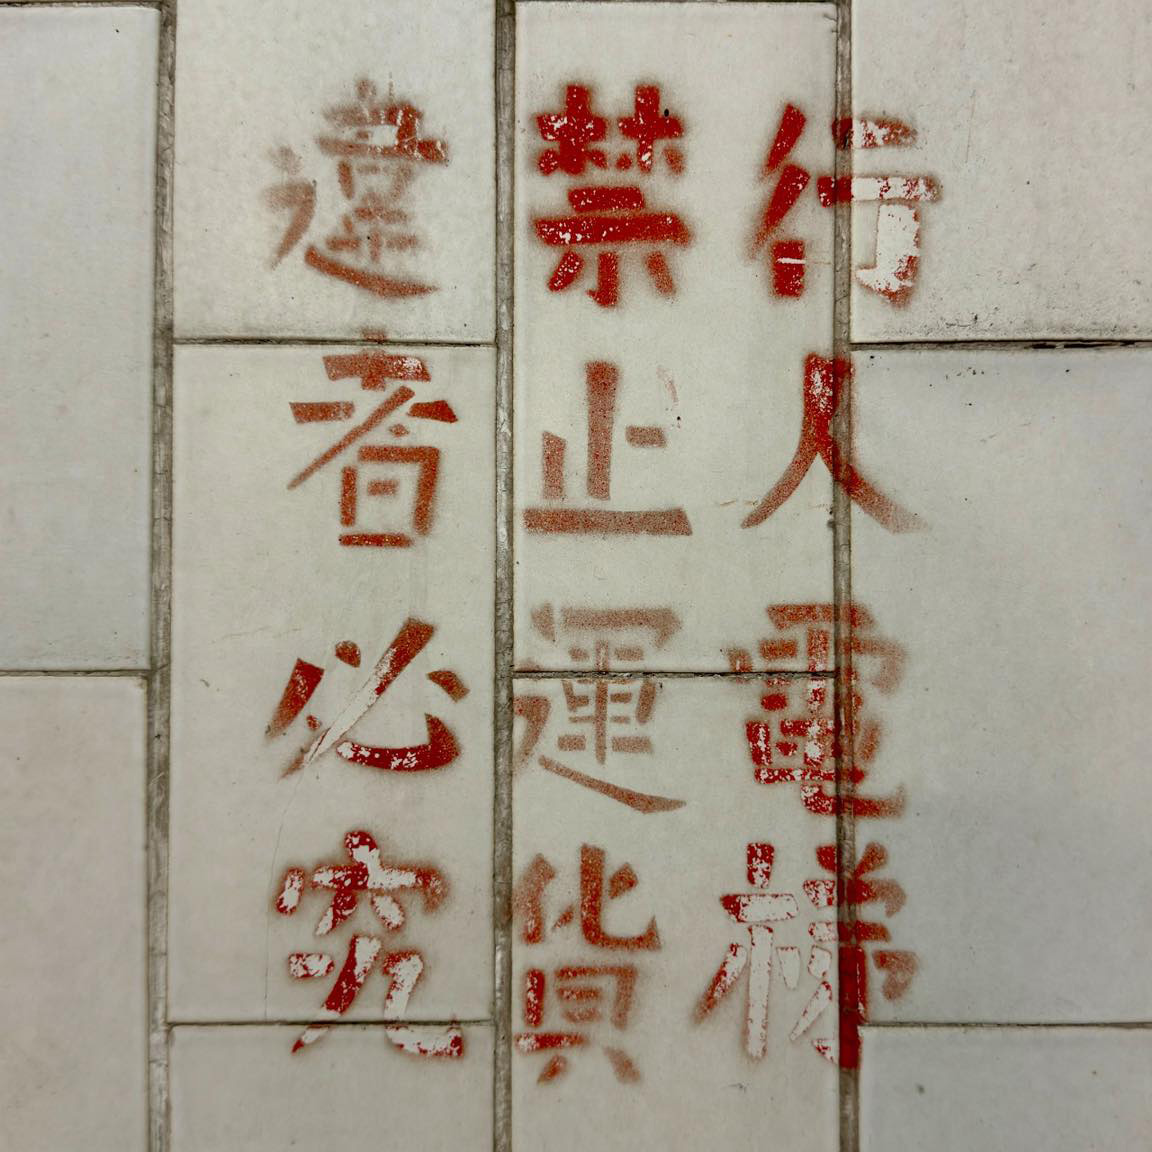 行人電梯
禁止運貨
違者必究